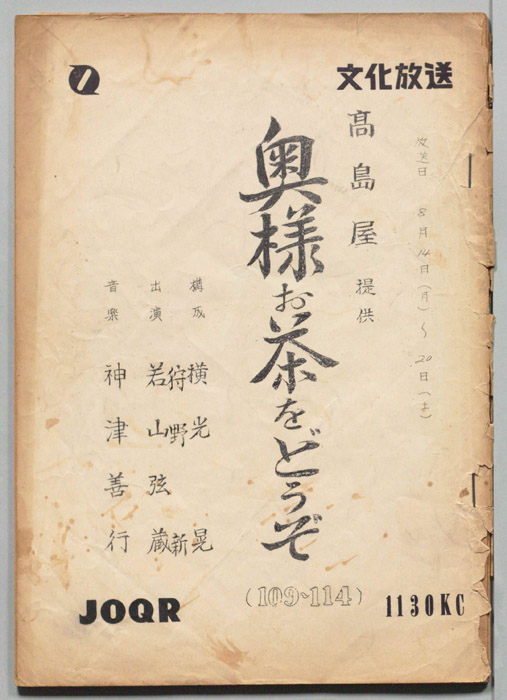 文化放送
放送日 8月14日(月)~20日(土)
髙島屋 提供
奥様お茶をどうぞ
(109~114)
構成 横光 晃
狩野 新
出演 若山弦蔵
音楽 神津善行
JOQR
1130KC